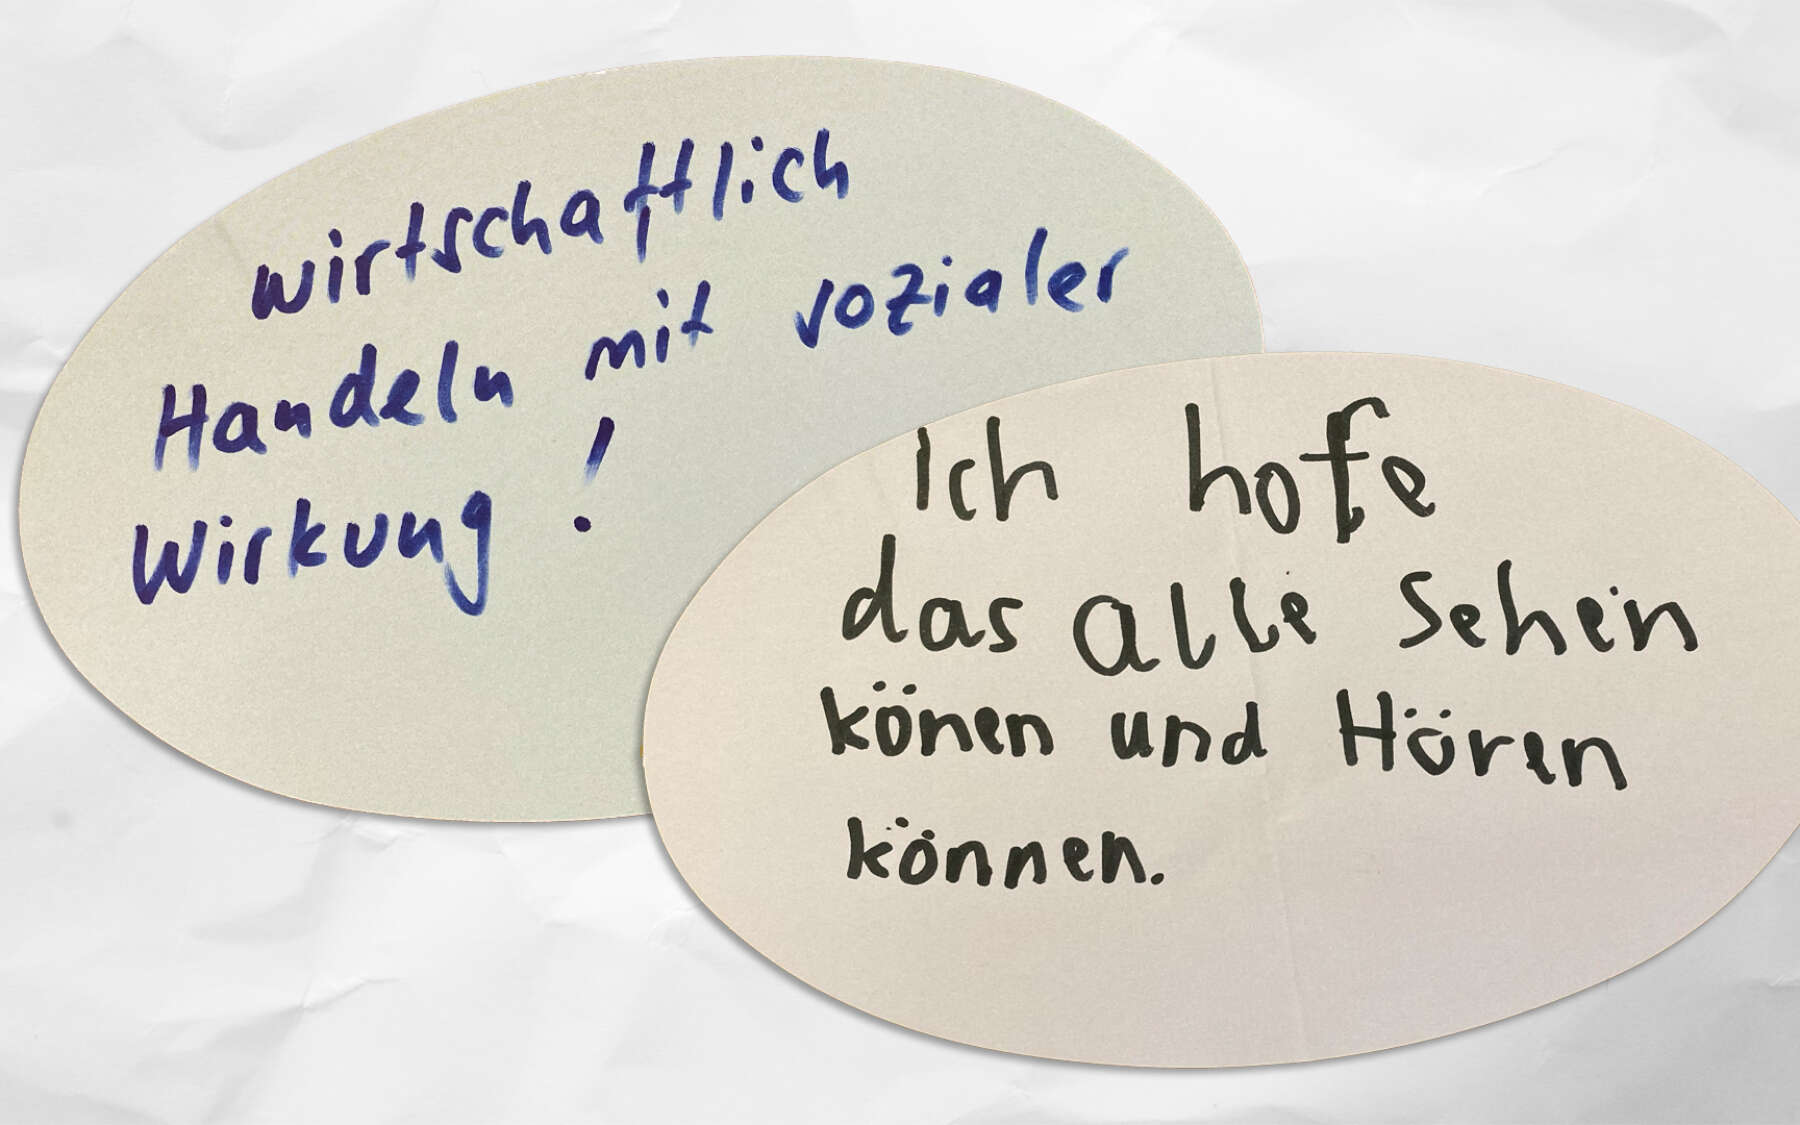 wirtschaftlich
Handeln mit sozialer
Wirkung!
Ich hofe
das alle Sehen
könen und Hören
können.